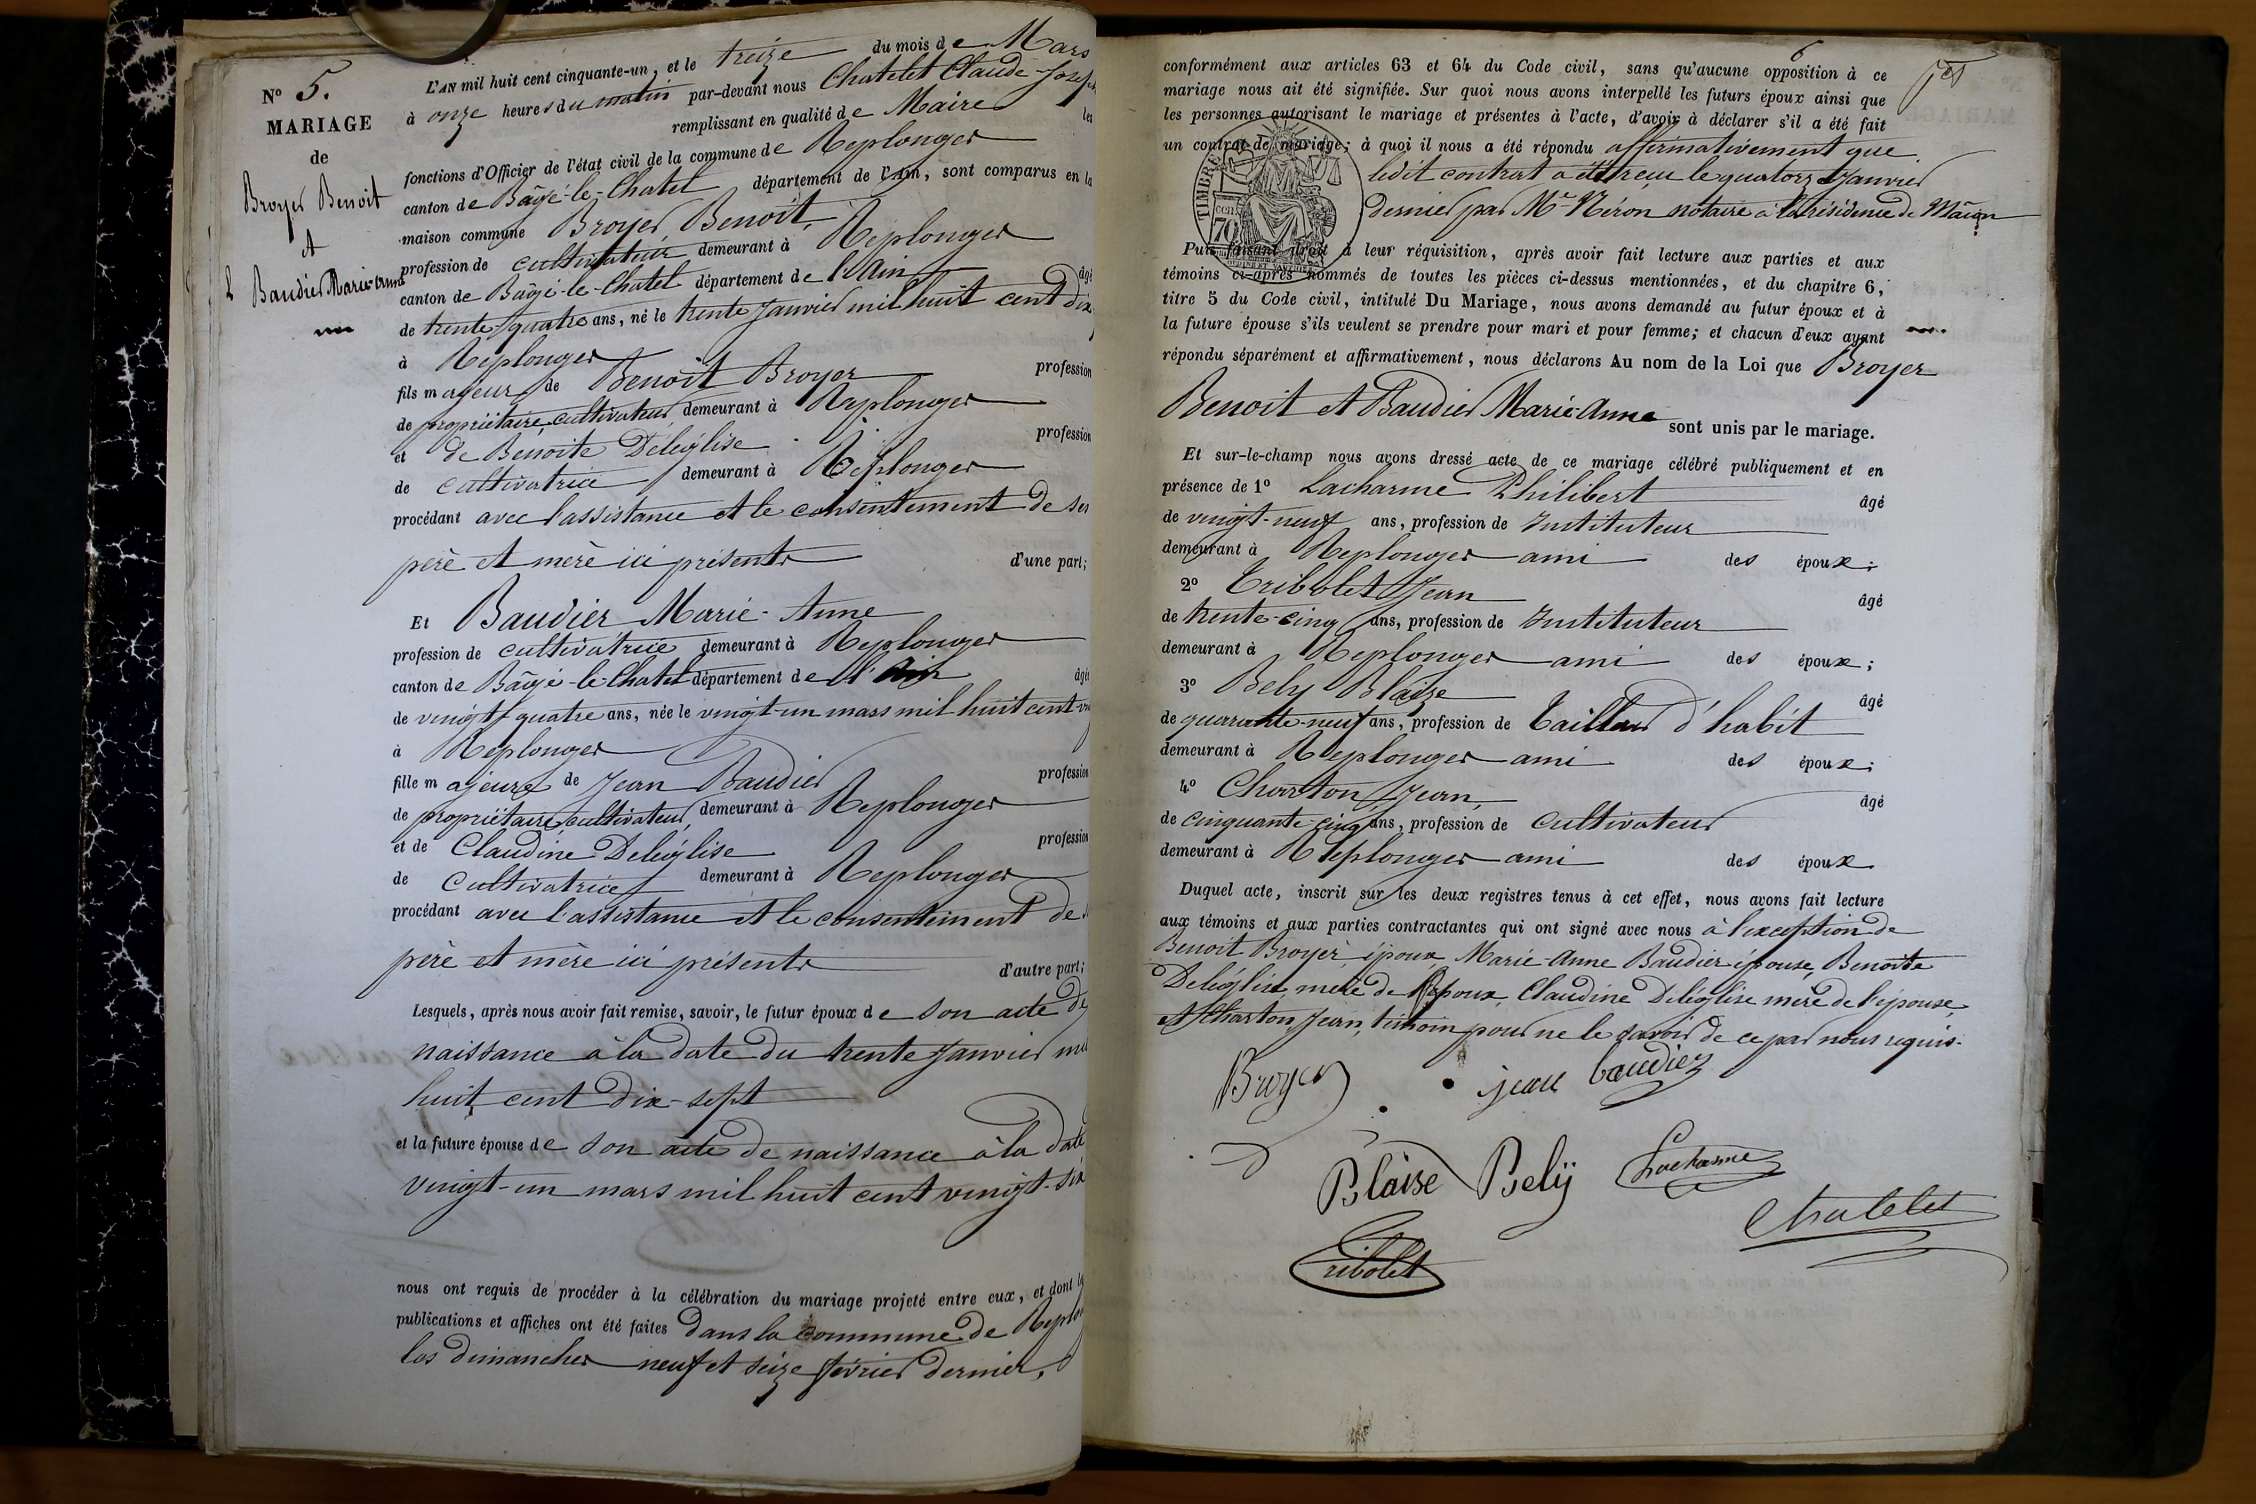 N° 5.
MARIAGE
de
Broyer Benoit
et
Baudier Marie-Anne
L'AN mil huit cent cinquante-un, et le treize du mois de Mars
à onze heures du matin par-devant nous Chatelet Claude-Joseph
remplissant en qualité de Maire les
fonctions d'Officier de l'état civil de la commune de Replonger
canton de Bâgé-le-Chatel département de l'Ain, sont comparus en la
maison commune Broyer, Benoit,
profession de cultivateur demeurant à Replonger
canton de Bâgé-le-Chatel département de l'Ain âgé
de trente-quatre ans, né le trente janvier mil huit cent dix
à Replonger
fils majeur de Benoit Broyer profession
de propriétaire, cultivateur, demeurant à Replonger
et de Benoite Déléglise profession
de cultivatrice demeurant à Replonger
procédant avec l'assistance et le consentement de ses
père et mère ici présents d'une part;
Et Baudier Marie-Anne
profession de cultivatrice demeurant à Replonger
canton de Bâgé-le-Chatel département de l'Ain âgée
de vingt-quatre ans, née le vingt-un mars mil huit cent
à Replonger
fille majeure de Jean Baudier profession
de propriétaire, cultivateur, demeurant à Replonger
et de Claudine Deléglise profession
de Cultivatrice demeurant à Replonger
procédant avec l'assistance et le consentement de
père et mère ici présents d'autre part;
Lesquels, après nous avoir fait remise, savoir, le futur époux de son acte de
naissance à la date du trente Janvier mil
huit cent dix-sept
et la future épouse de son acte de naissance à la date
vingt-un mars mil huit cent vingt-six
nous ont requis de procéder à la célébration du mariage projeté entre eux, et dont les
publications et affiches ont été faites dans la commune de Replon
les dimanches neuf et seize février dernier,
6
conformément aux articles 63 et 64 du Code civil, sans qu'aucune opposition à ce
mariage nous ait été signifiée. Sur quoi nous avons interpellé les futurs époux ainsi que
les personnes autorisant le mariage et présentes à l'acte, d'avoir à déclarer s'il a été fait
un contrat de mariage; à quoi il nous a été répondu affirmativement que
ledit contrat a été reçu le quatorze Janvier
dernier par Me Néron notaire à la résidence de Mâcon
TIMBRE
70 cen.
Puis faisant droit à leur réquisition, après avoir fait lecture aux parties et aux
témoins ci-après nommés de toutes les pièces ci-dessus mentionnées, et du chapitre 6,
titre 5 du Code civil, intitulé Du Mariage, nous avons demandé au futur époux et à
la future épouse s'ils veulent se prendre pour mari et pour femme; et chacun d'eux ayant
répondu séparément et affirmativement, nous déclarons Au nom de la Loi que Broyer
Benoit et Baudier Marie-Anne sont unis par le mariage.
Et sur-le-champ nous avons dressé acte de ce mariage célébré publiquement et en
présence de 1° Lacharme Philibert âgé
de vingt-neuf ans, profession de Instituteur
demeurant à Replonger ami des époux;
2° Tribolet Jean âgé
de trente-cinq ans, profession de Instituteur
demeurant à Replonger ami des époux;
3° Bely Blaize âgé
de quarante-neuf ans, profession de Tailleur d'habit
demeurant à Replonger ami des époux;
4° Charton Jean, âgé
de cinquante-cinq ans, profession de Cultivateur
demeurant à Replonger ami des époux
Duquel acte, inscrit sur les deux registres tenus à cet effet, nous avons fait lecture
aux témoins et aux parties contractantes qui ont signé avec nous à l'exception de
Benoit Broyer époux, Marie-Anne Baudier épouse, Benoite
Deléglise mère de l'époux, Claudine Deléglise mère de l'épouse,
et Charton Jean, témoin pour ne le savoir de ce par nous requis.
Broyer
jean baudier
Blaise Belÿ
Lacharme
Chatelet
Tribolet